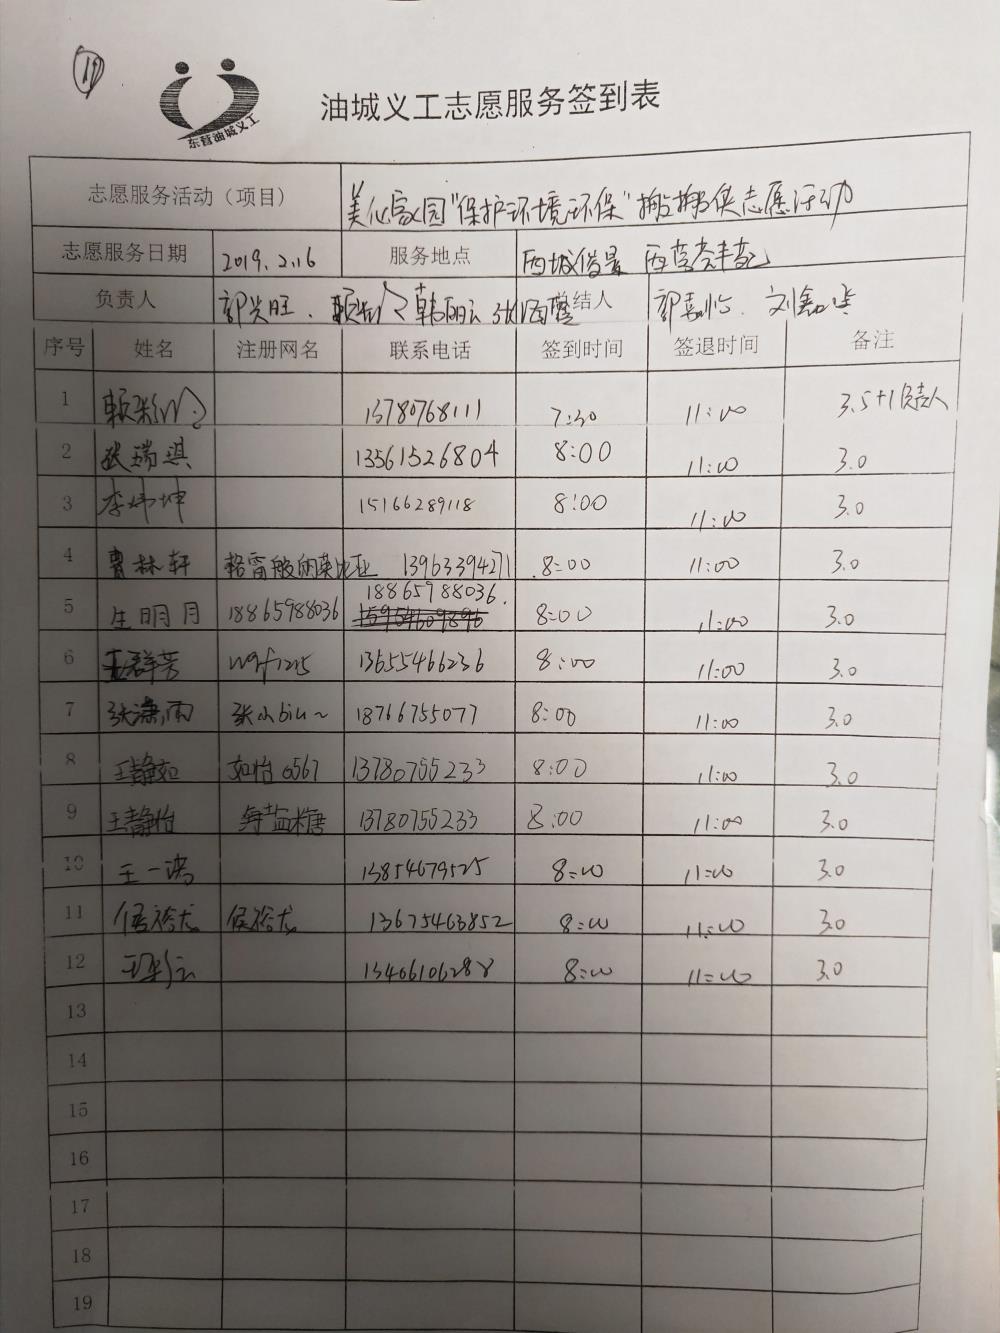 19
东营油城义工
油城义工志愿服务签到表
志愿服务活动（项目） 美化家园"保护环境环保" 志愿活动
志愿服务日期 2019.2.16 服务地点 西城俊景
负责人 郭兴旺、 韩丽云 结人 郭嘉怡、刘鑫
序号 姓名 注册网名 联系电话 签到时间 签退时间 备注
1 13780768111 7:30 11:00 3.5+1负责人
2 张瑞琪 13561526804 8:00 11:00 3.0
3 李炜坤 15166289118 8:00 11:00 3.0
4 曹林轩 格雷般的莱比亚 13963394271 8:00 11:00 3.0
5 生明月 18865988036 18865988036. 8:00 11:00 3.0
6 王群芳 wqf1215 13655466236 8:00 11:00 3.0
7 张潇雨 张小biu~ 18766755077 8:00 11:00 3.0
8 王静如 如怡0567 13780755233 8:00 11:00 3.0
9 王静怡 海盐糖 13780755233 8:00 11:00 3.0
10 王一鸿 13854679525 8:00 11:00 3.0
11 侯裕龙 侯裕龙 13675463852 8:00 11:00 3.0
12 13406106288 8:00 11:00 3.0
13
14
15
16
17
18
19